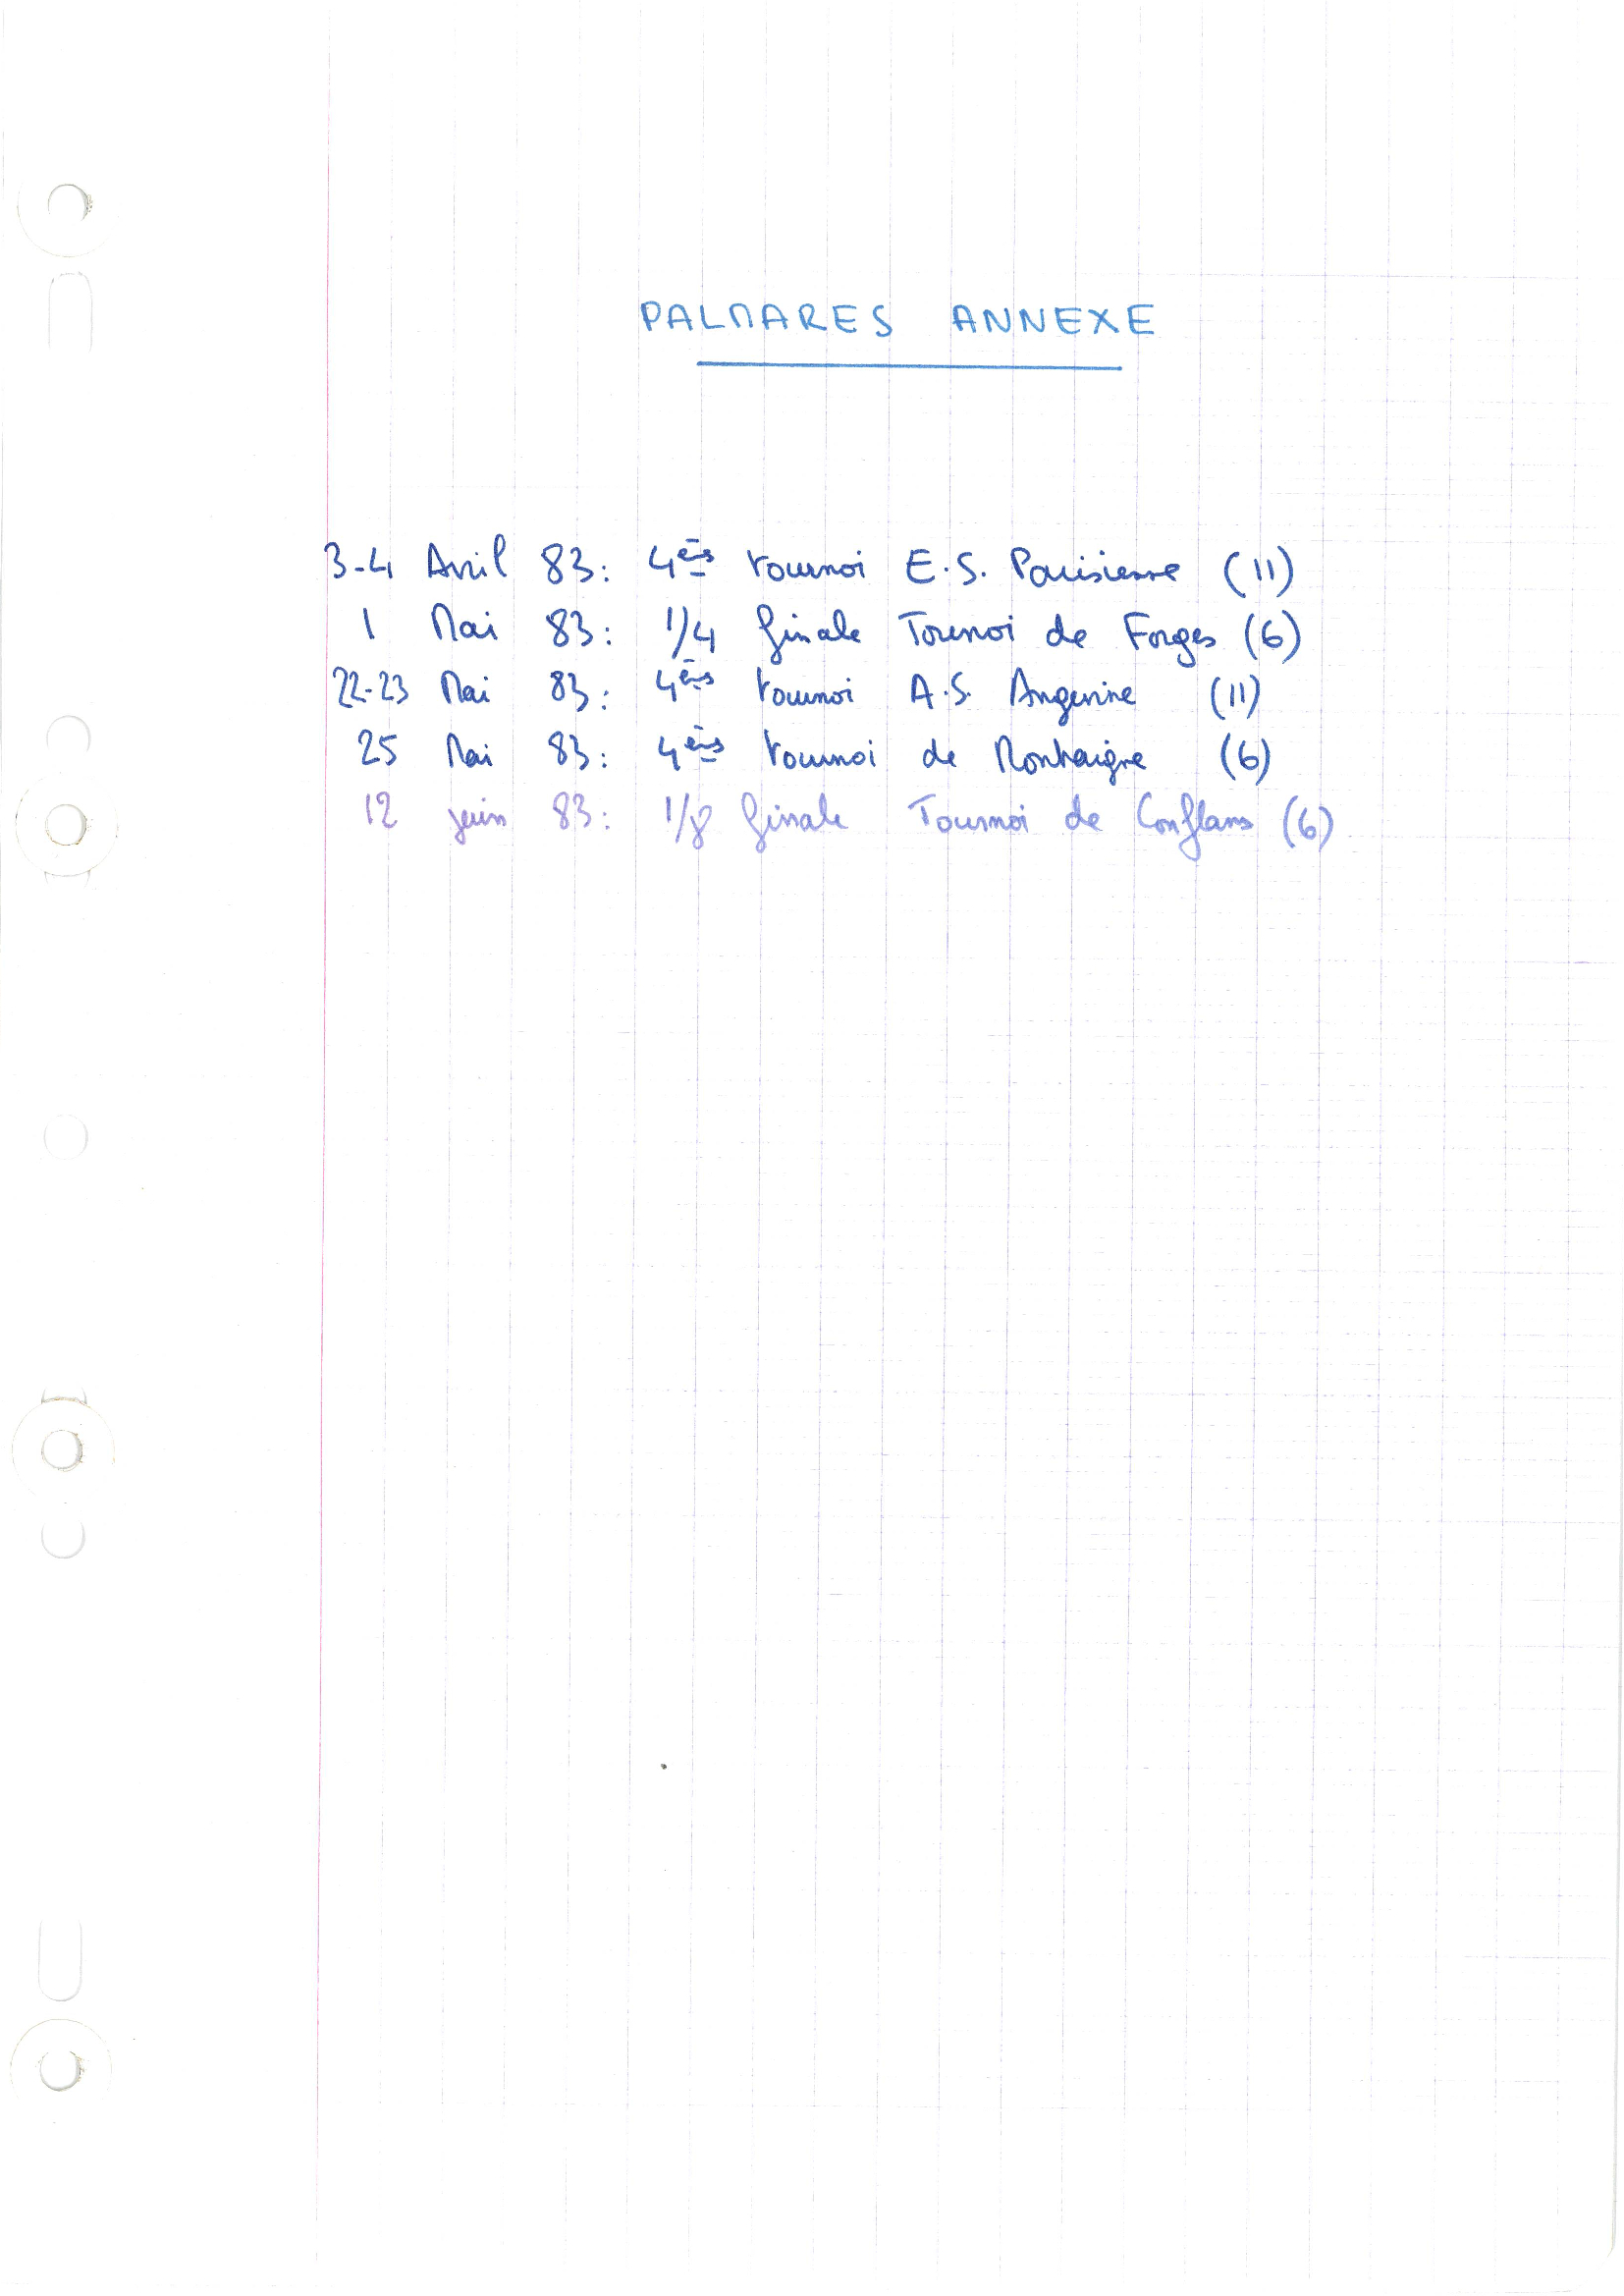 PALMARES ANNEXE
3-4 Avril 83: 4ès tournoi E.S. Parisienne (11)
1 Mai 83: 1/4 finale Tournoi de Forges (6)
22-23 Mai 83: 4ès tournoi A.S. Angevine (11)
25 Mai 83: 4ès tournoi de Montaigne (6)
12 juin 83: 1/8 finale Tournoi de Conflans (6)